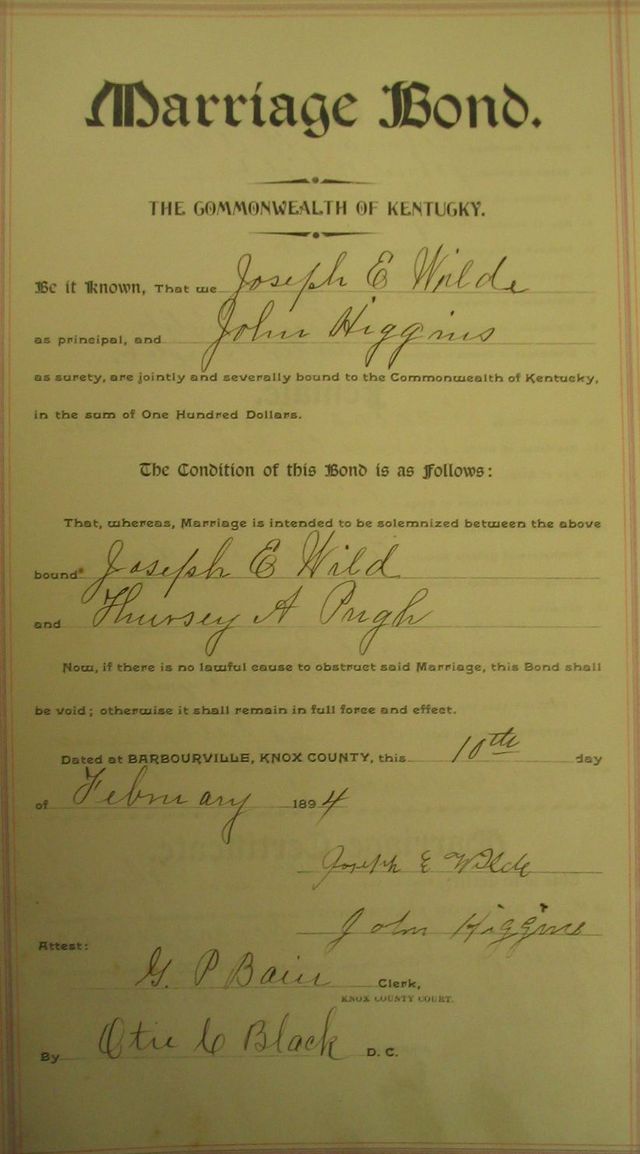 Marriage Bond.
THE COMMONWEALTH OF KENTUCKY.
Be it Known, That we Joseph E Wilde
as principal, and John Higgins
as surety, are jointly and severally bound to the Commonwealth of Kentucky,
in the sum of One Hundred Dollars.
The Condition of this Bond is as Follows:
That, whereas, Marriage is intended to be solemnized between the above
bound Joseph E Wild
and Thursey A Pugh
Now, if there is no lawful cause to obstruct said Marriage, this Bond shall
be void; otherwise it shall remain in full force and effect.
Dated at BARBOURVILLE, KNOX COUNTY, this 10th day
of February 1894
Joseph E Wilde
John Higgins
Attest:
G. P Bain Clerk,
KNOX COUNTY COURT.
By Otie C Black D. C.